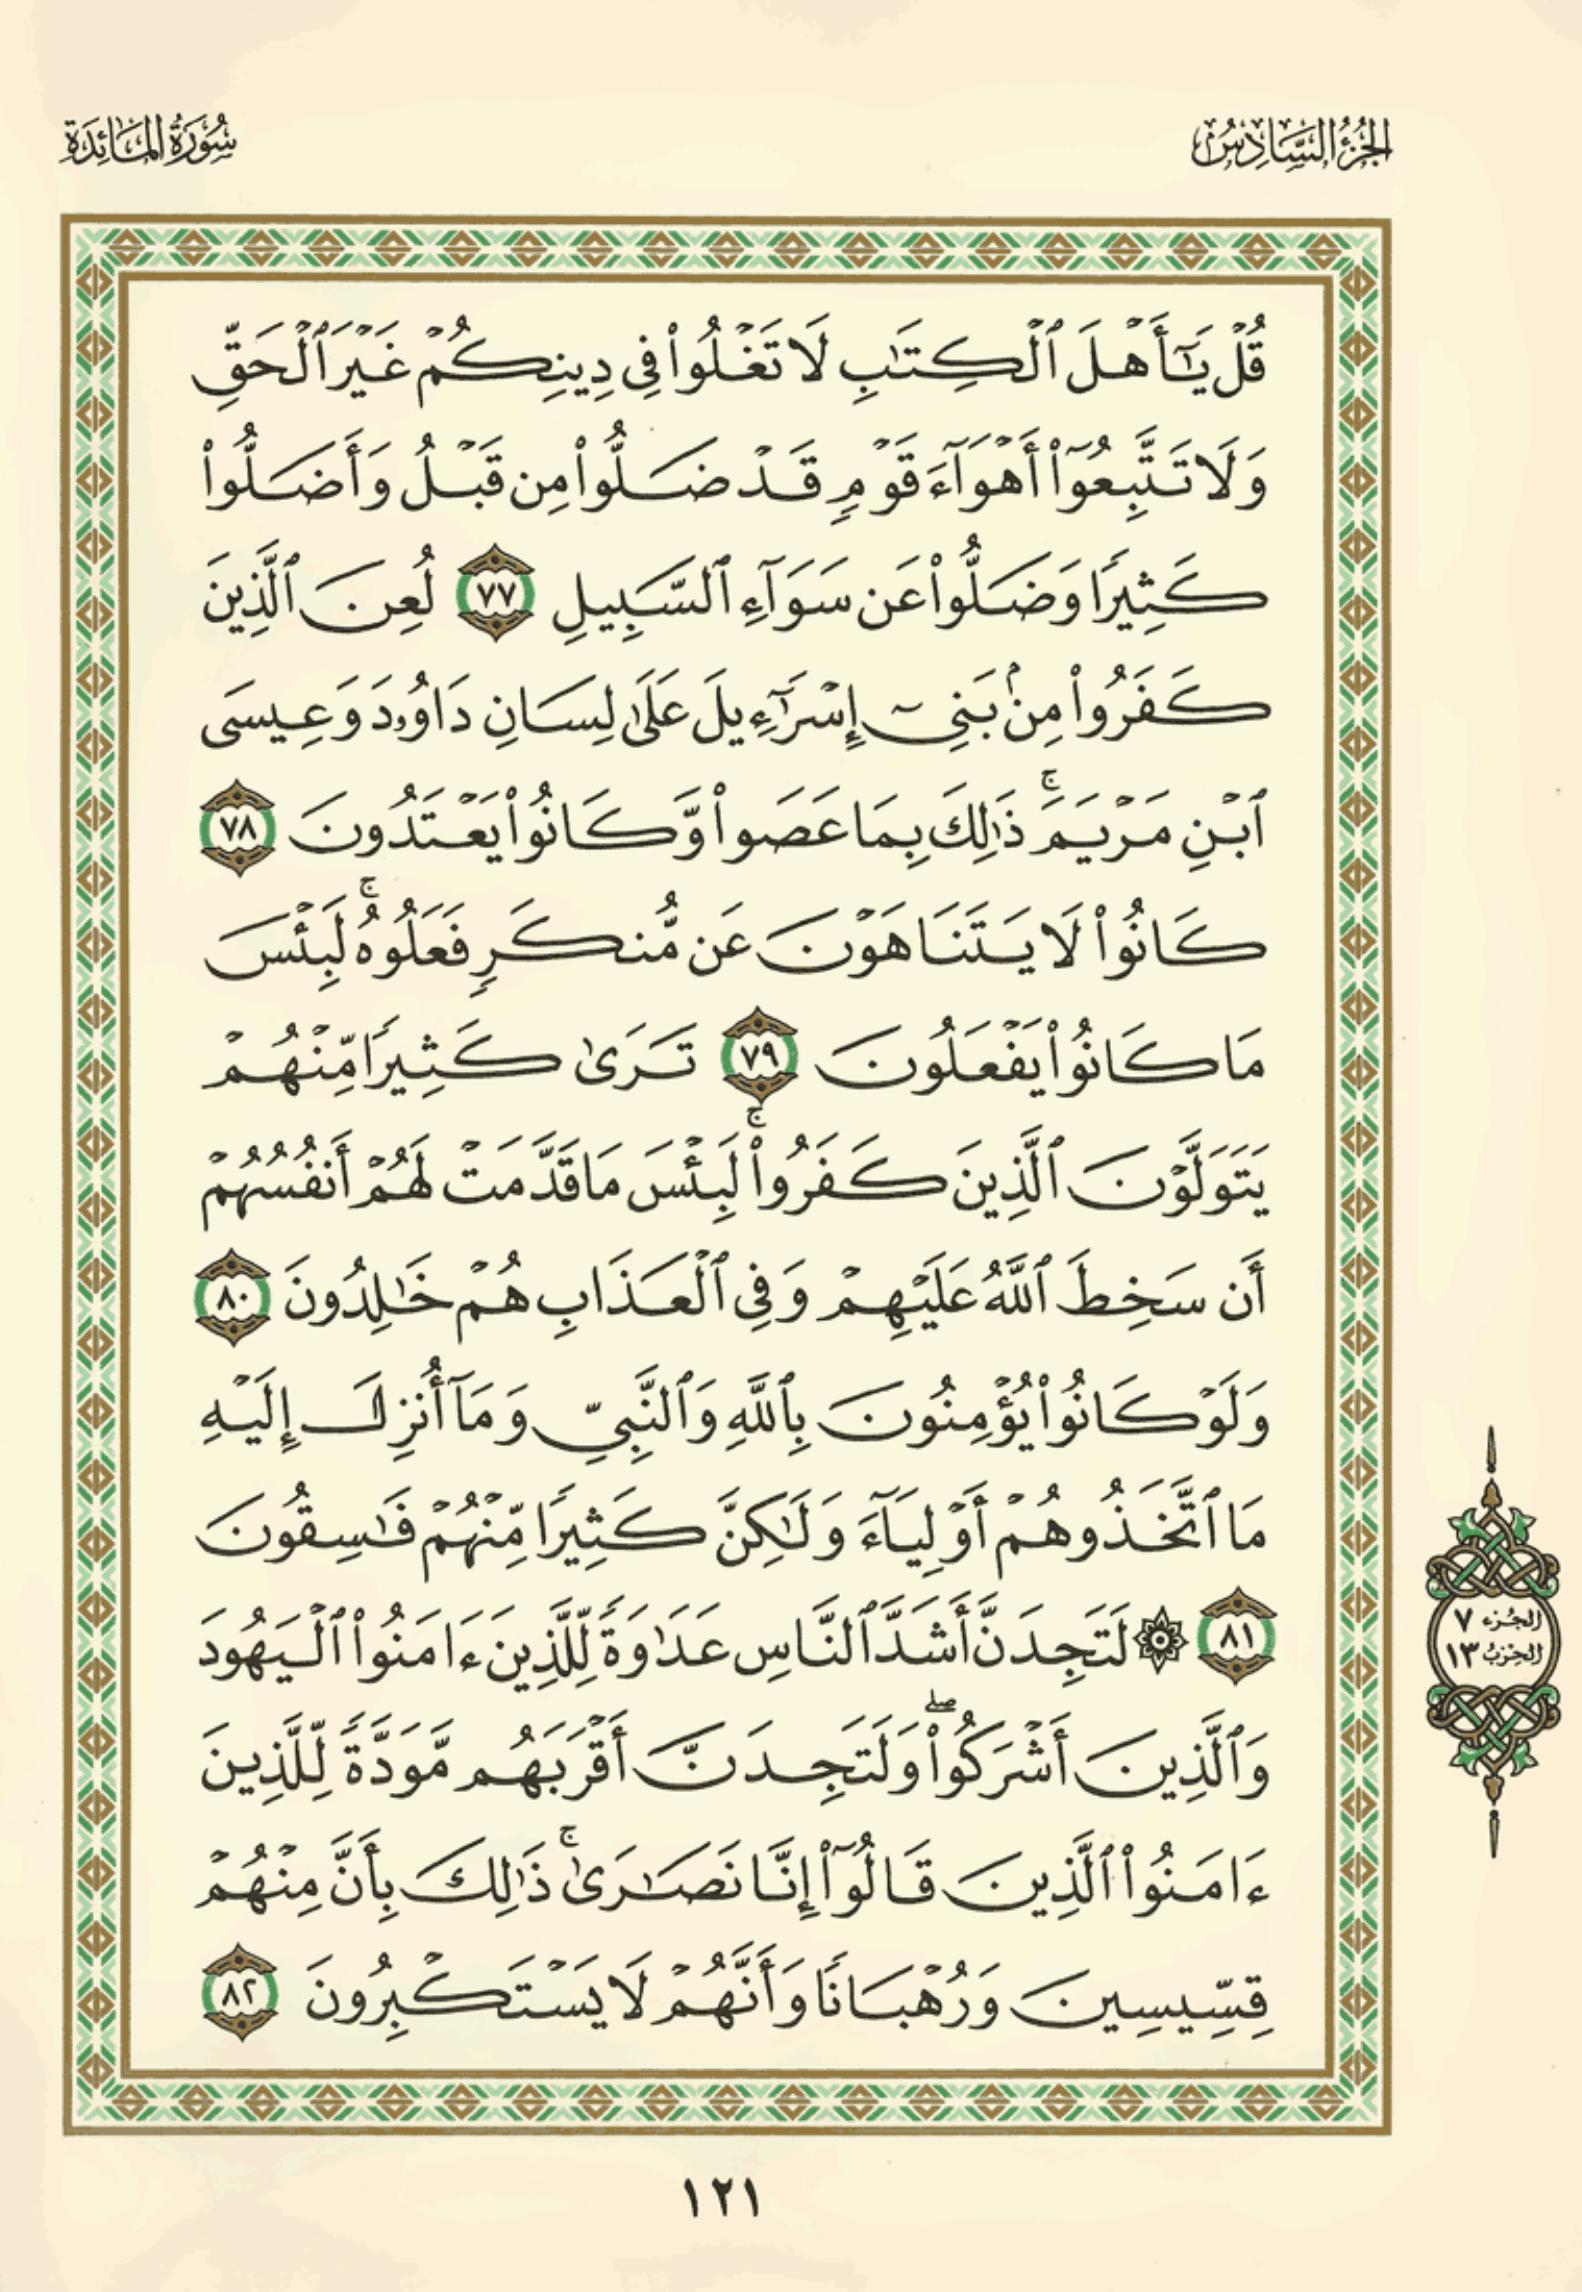 الجزء السادس
سورة المائدة
قُلْ يَٰٓأَهْلَ ٱلْكِتَٰبِ لَا تَغْلُوا۟ فِى دِينِكُمْ غَيْرَ ٱلْحَقِّ
وَلَا تَتَّبِعُوٓا۟ أَهْوَآءَ قَوْمٍ قَدْ ضَلُّوا۟ مِن قَبْلُ وَأَضَلُّوا۟
كَثِيرًا وَضَلُّوا۟ عَن سَوَآءِ ٱلسَّبِيلِ ٧٧ لُعِنَ ٱلَّذِينَ
كَفَرُوا۟ مِنۢ بَنِىٓ إِسْرَٰٓءِيلَ عَلَىٰ لِسَانِ دَاوُۥدَ وَعِيسَى
ٱبْنِ مَرْيَمَ ۚ ذَٰلِكَ بِمَا عَصَوا۟ وَّكَانُوا۟ يَعْتَدُونَ ٧٨
كَانُوا۟ لَا يَتَنَاهَوْنَ عَن مُّنكَرٍ فَعَلُوهُ ۚ لَبِئْسَ
مَا كَانُوا۟ يَفْعَلُونَ ٧٩ تَرَىٰ كَثِيرًا مِّنْهُمْ
يَتَوَلَّوْنَ ٱلَّذِينَ كَفَرُوا۟ ۚ لَبِئْسَ مَا قَدَّمَتْ لَهُمْ أَنفُسُهُمْ
أَن سَخِطَ ٱللَّهُ عَلَيْهِمْ وَفِى ٱلْعَذَابِ هُمْ خَٰلِدُونَ ٨٠
وَلَوْ كَانُوا۟ يُؤْمِنُونَ بِٱللَّهِ وَٱلنَّبِىِّ وَمَآ أُنزِلَ إِلَيْهِ
مَا ٱتَّخَذُوهُمْ أَوْلِيَآءَ وَلَٰكِنَّ كَثِيرًا مِّنْهُمْ فَٰسِقُونَ
٨١ ۞ لَتَجِدَنَّ أَشَدَّ ٱلنَّاسِ عَدَٰوَةً لِّلَّذِينَ ءَامَنُوا۟ ٱلْيَهُودَ
وَٱلَّذِينَ أَشْرَكُوا۟ ۖ وَلَتَجِدَنَّ أَقْرَبَهُم مَّوَدَّةً لِّلَّذِينَ
ءَامَنُوا۟ ٱلَّذِينَ قَالُوٓا۟ إِنَّا نَصَٰرَىٰ ۚ ذَٰلِكَ بِأَنَّ مِنْهُمْ
قِسِّيسِينَ وَرُهْبَانًا وَأَنَّهُمْ لَا يَسْتَكْبِرُونَ ٨٢
الجزء ٧
الحزب ١٣
١٢١